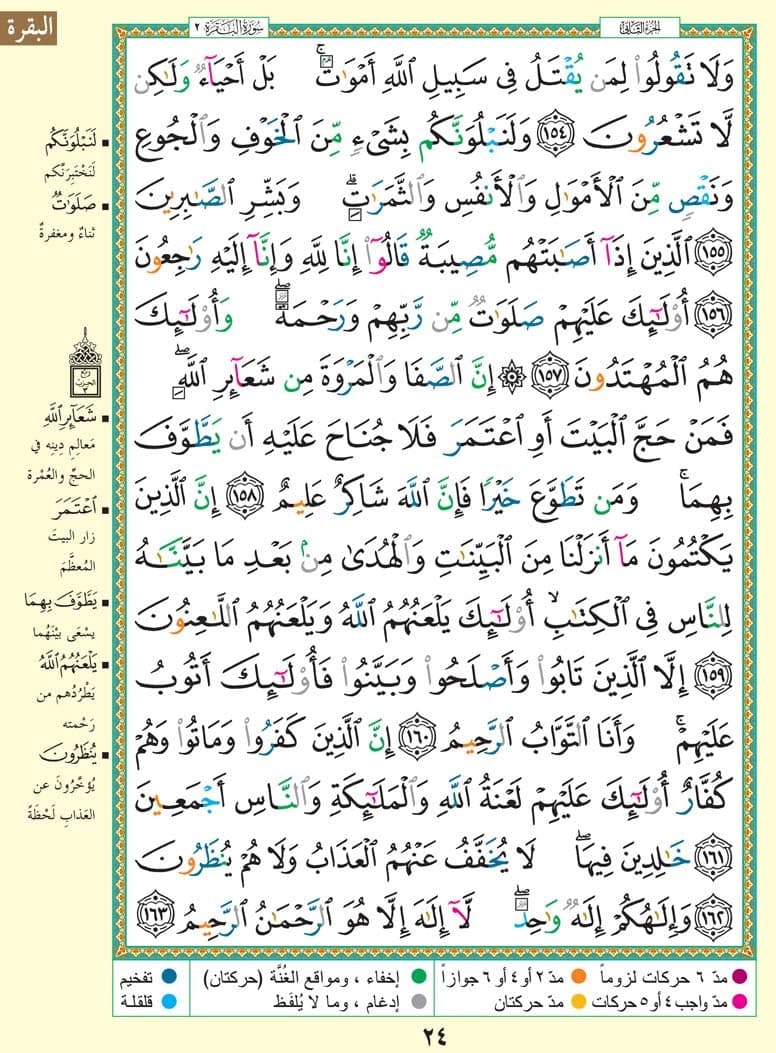 البقرة
الجزء الثاني
سورة البقرة ٢
وَلَا تَقُولُوا۟ لِمَن يُقْتَلُ فِى سَبِيلِ ٱللَّهِ أَمْوَٰتٌۢ ۚ بَلْ أَحْيَآءٌ وَلَٰكِن
لَّا تَشْعُرُونَ ١٥٤ وَلَنَبْلُوَنَّكُم بِشَىْءٍ مِّنَ ٱلْخَوْفِ وَٱلْجُوعِ
وَنَقْصٍ مِّنَ ٱلْأَمْوَٰلِ وَٱلْأَنفُسِ وَٱلثَّمَرَٰتِ ۗ وَبَشِّرِ ٱلصَّٰبِرِينَ
١٥٥ ٱلَّذِينَ إِذَآ أَصَٰبَتْهُم مُّصِيبَةٌ قَالُوٓا۟ إِنَّا لِلَّهِ وَإِنَّآ إِلَيْهِ رَٰجِعُونَ
١٥٦ أُو۟لَٰٓئِكَ عَلَيْهِمْ صَلَوَٰتٌ مِّن رَّبِّهِمْ وَرَحْمَةٌ ۖ وَأُو۟لَٰٓئِكَ
هُمُ ٱلْمُهْتَدُونَ ١٥٧ ۞ إِنَّ ٱلصَّفَا وَٱلْمَرْوَةَ مِن شَعَآئِرِ ٱللَّهِ ۖ
فَمَنْ حَجَّ ٱلْبَيْتَ أَوِ ٱعْتَمَرَ فَلَا جُنَاحَ عَلَيْهِ أَن يَطَّوَّفَ
بِهِمَا ۚ وَمَن تَطَوَّعَ خَيْرًا فَإِنَّ ٱللَّهَ شَاكِرٌ عَلِيمٌ ١٥٨ إِنَّ ٱلَّذِينَ
يَكْتُمُونَ مَآ أَنزَلْنَا مِنَ ٱلْبَيِّنَٰتِ وَٱلْهُدَىٰ مِنۢ بَعْدِ مَا بَيَّنَّٰهُ
لِلنَّاسِ فِى ٱلْكِتَٰبِ ۙ أُو۟لَٰٓئِكَ يَلْعَنُهُمُ ٱللَّهُ وَيَلْعَنُهُمُ ٱللَّٰعِنُونَ
١٥٩ إِلَّا ٱلَّذِينَ تَابُوا۟ وَأَصْلَحُوا۟ وَبَيَّنُوا۟ فَأُو۟لَٰٓئِكَ أَتُوبُ
عَلَيْهِمْ ۚ وَأَنَا ٱلتَّوَّابُ ٱلرَّحِيمُ ١٦٠ إِنَّ ٱلَّذِينَ كَفَرُوا۟ وَمَاتُوا۟ وَهُمْ
كُفَّارٌ أُو۟لَٰٓئِكَ عَلَيْهِمْ لَعْنَةُ ٱللَّهِ وَٱلْمَلَٰٓئِكَةِ وَٱلنَّاسِ أَجْمَعِينَ
١٦١ خَٰلِدِينَ فِيهَا ۖ لَا يُخَفَّفُ عَنْهُمُ ٱلْعَذَابُ وَلَا هُمْ يُنظَرُونَ
١٦٢ وَإِلَٰهُكُمْ إِلَٰهٌ وَٰحِدٌ ۖ لَّآ إِلَٰهَ إِلَّا هُوَ ٱلرَّحْمَٰنُ ٱلرَّحِيمُ ١٦٣
لَنَبْلُوَنَّكُم
لَنَخْتَبِرَنَّكم
صَلَوَٰتٌ
ثناءٌ ومغفرةٌ
ربع
الحزب
٣
شَعَآئِرِ ٱللَّهِ
مَعالِمِ دينِه في
الحجِّ والعُمْرة
ٱعْتَمَرَ
زار البيتَ
المُعظَّمَ
يَطَّوَّفَ بِهِمَا
يسْعَى بيْنَهُما
يَلْعَنُهُمُ ٱللَّهُ
يَطْرُدُهم من
رَحْمته
يُنظَرُونَ
يُؤخَّرُونَ عن
العَذابِ لَحْظَةً
مدّ ٦ حركات لزوماً
مدّ ٢ أو ٤ أو ٦ جوازاً
إخفاء ، ومواقع الغُنَّة (حركتان)
تفخيم
مدّ واجب ٤ أو ٥ حركات
مدّ حركتان
إدغام ، وما لا يُلفَظ
قلقلة
٢٤